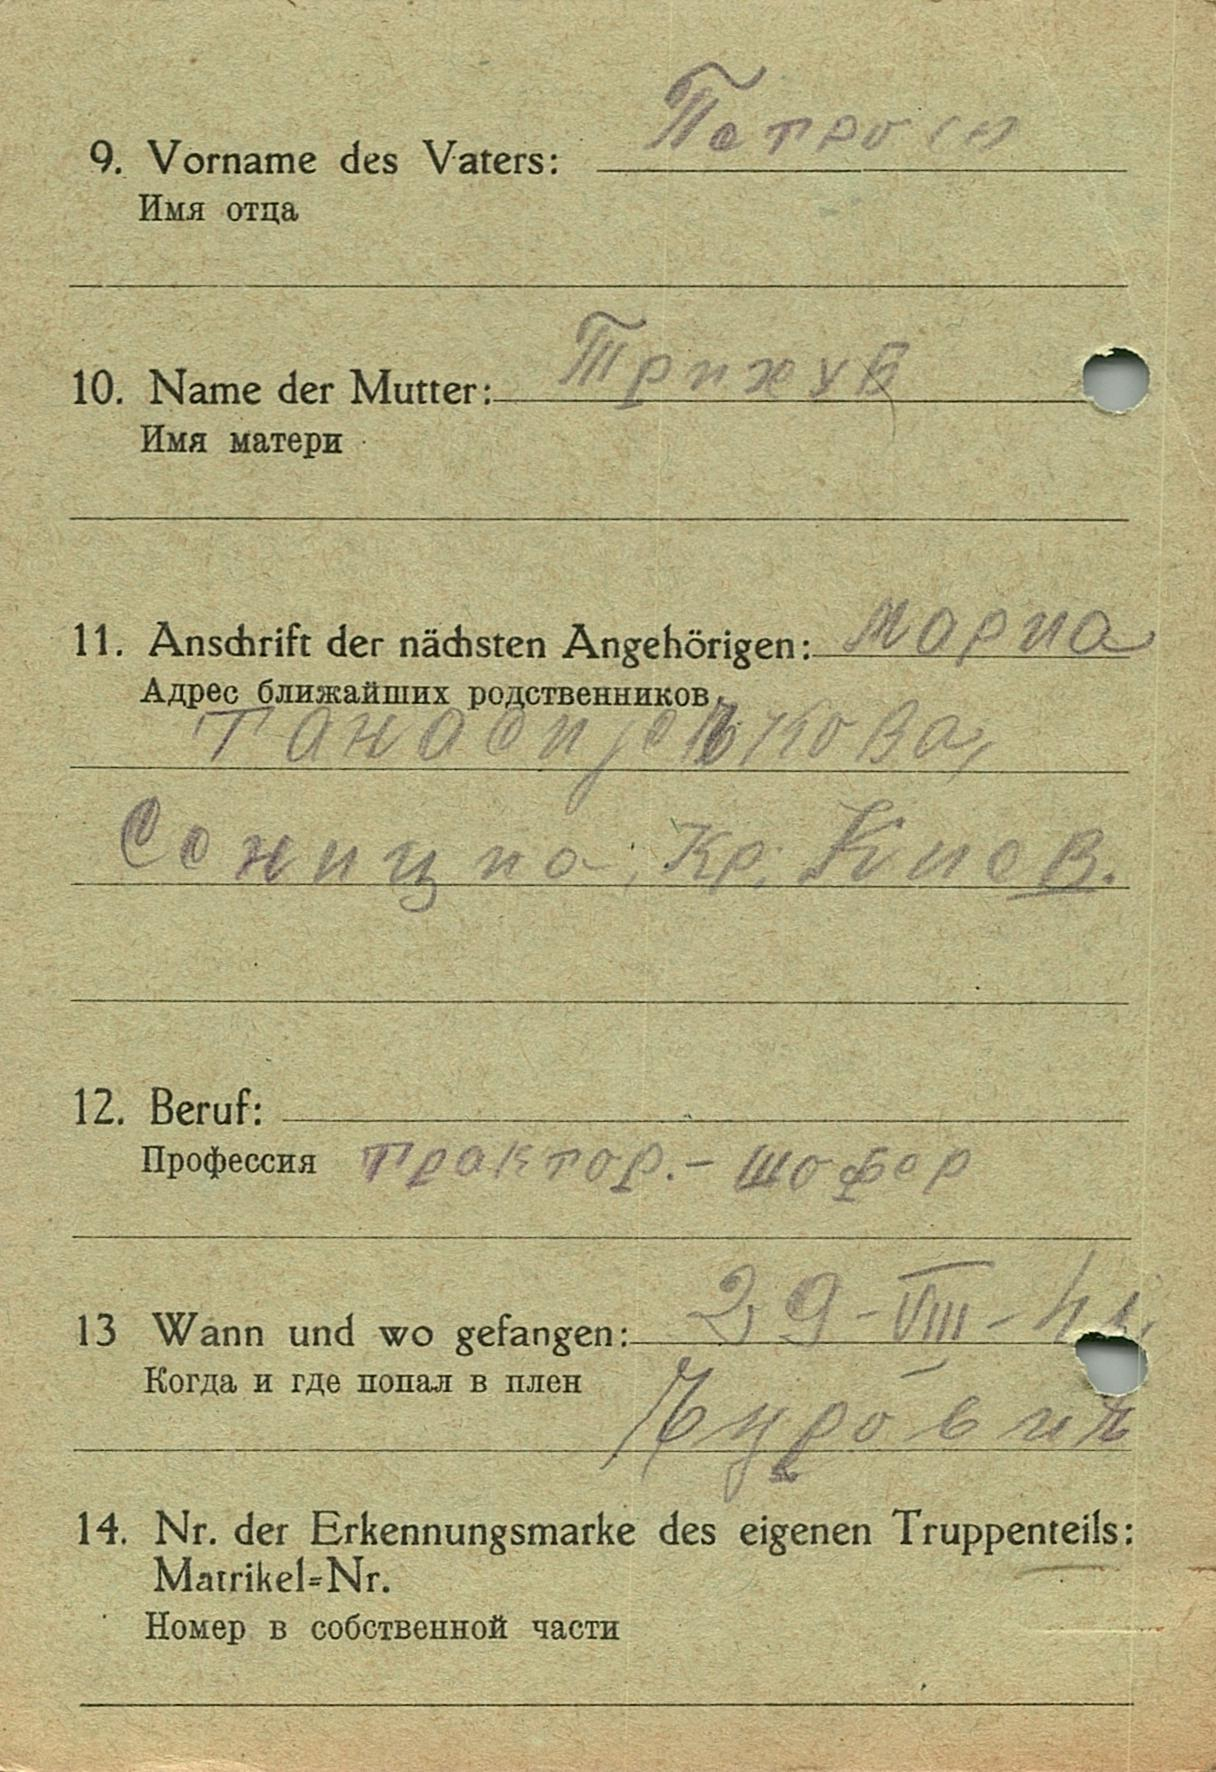 9. Vorname des Vaters: Петро
Имя отца
10. Name der Mutter: Трихуб
Имя матери
11. Anschrift der nächsten Angehörigen: Мариа
Адрес ближайших родственников
Кр. Киев.
12. Beruf:
Профессия трактор.- шофер
13 Wann und wo gefangen: 29-VIII-41
Когда и где попал в плен
14. Nr. der Erkennungsmarke des eigenen Truppenteils:
Matrikel=Nr.
Номер в собственной части